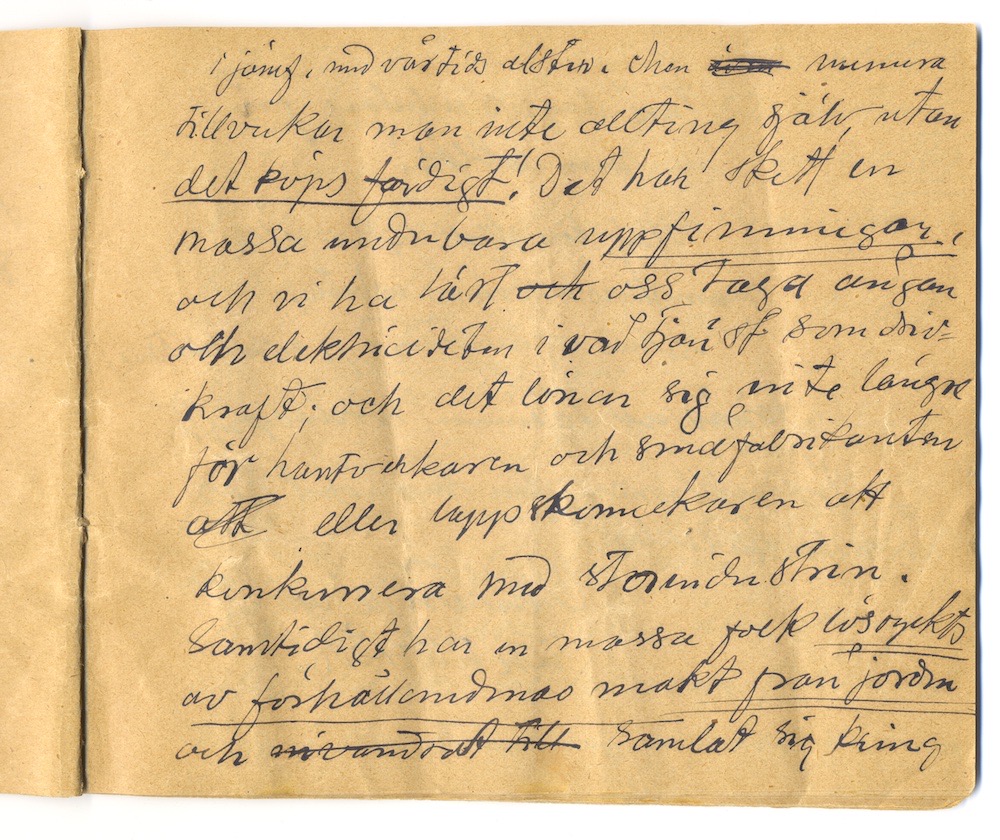 i jämf. med vår tids alster. Men numera
tillverkar man inte allting själv, utan
det köps färdigt! Det har skett en
massa underbara uppfinningar,
och vi ha lärt och oss taga ångan
och elektriciteten i vår tjänst som driv-
kraft. och det lönar sig inte längre
för hantverkaren och småfabrikanten
att eller lappskomakaren att
konkurrera med storindustrin.
Samtidigt har en massa folk lösryckts
av förhållandenas makt från jorden
och invandrat till samlat sig kring